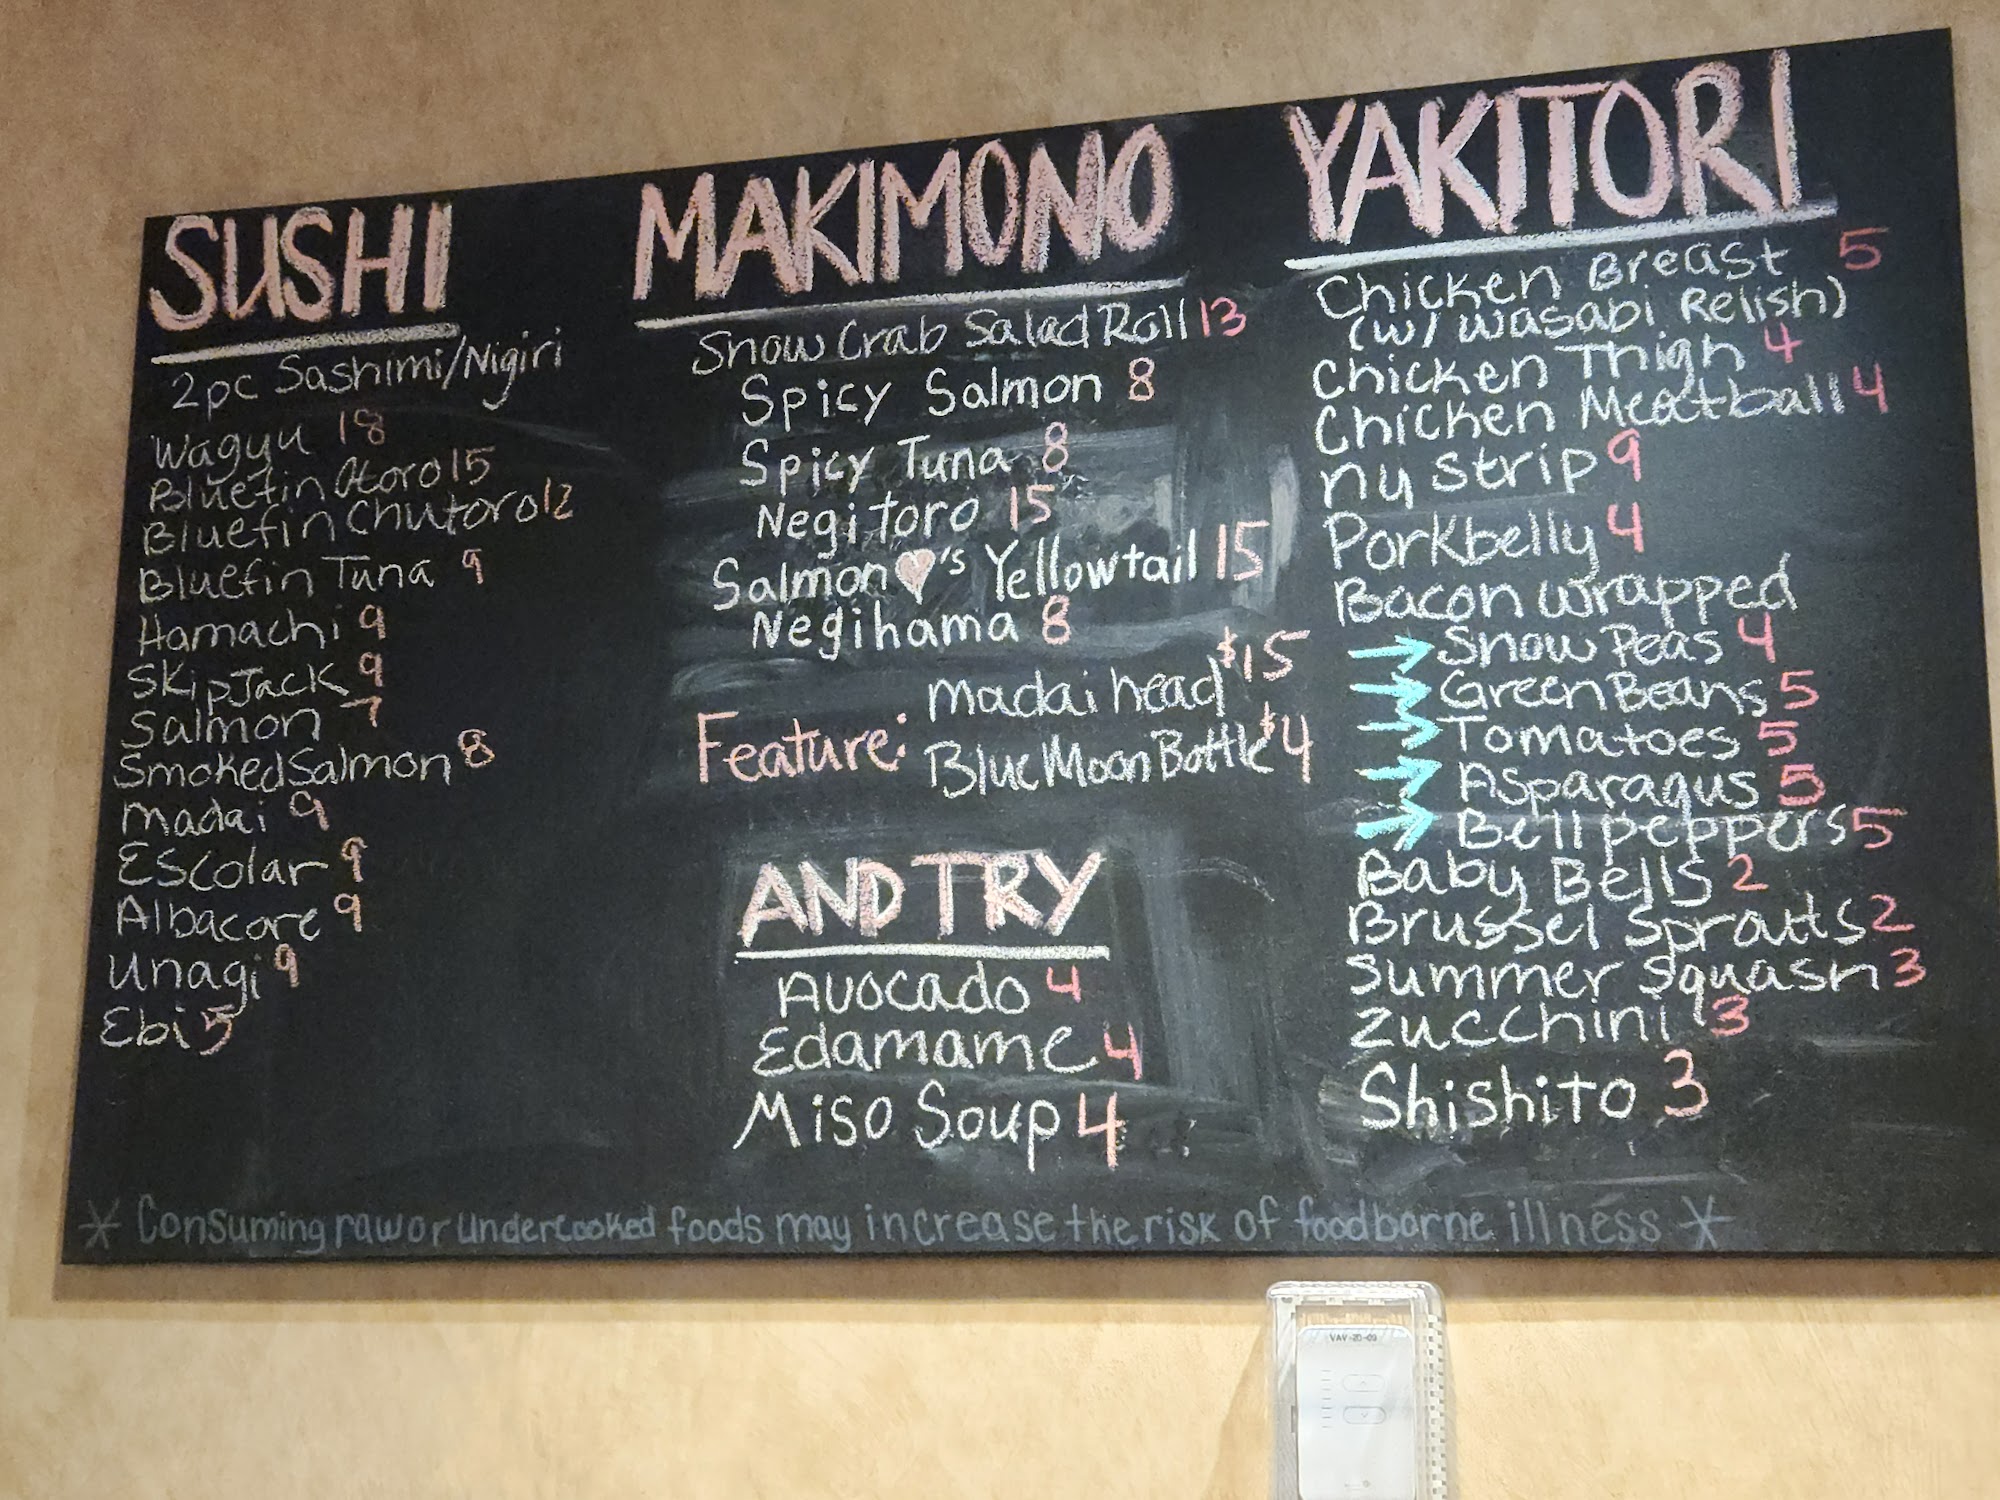 SUSHI
2pc Sashimi/Nigiri
Wagyu 18
Bluefin Otoro 15
Bluefin Chutoro 12
Bluefin Tuna 9
Hamachi 9
SkipJack 9
Salmon 7
Smoked Salmon 8
Madai 9
Escolar 9
Albacore 9
Unagi 9
Ebi 5
MAKIMONO
Snow Crab Salad Roll 13
Spicy Salmon 8
Spicy Tuna 8
Negitoro 15
Salmon ♥'s Yellowtail 15
Negihama 8
Feature:
Madai head $15
Blue Moon Bottle $4
AND TRY
Avocado 4
Edamame 4
Miso Soup 4
YAKITORI
Chicken Breast 5
(w/ wasabi Relish)
Chicken Thigh 4
Chicken Meatball 4
NY Strip 9
Porkbelly 4
Bacon wrapped
→ Snow Peas 4
→ Green Beans 5
→ Tomatoes 5
→ Asparagus 5
→ Bell peppers 5
Baby Bells 2
Brussel Sprouts 2
Summer Squash 3
Zucchini 3
Shishito 3
* Consuming raw or undercooked foods may increase the risk of foodborne illness *
VAV-20-09